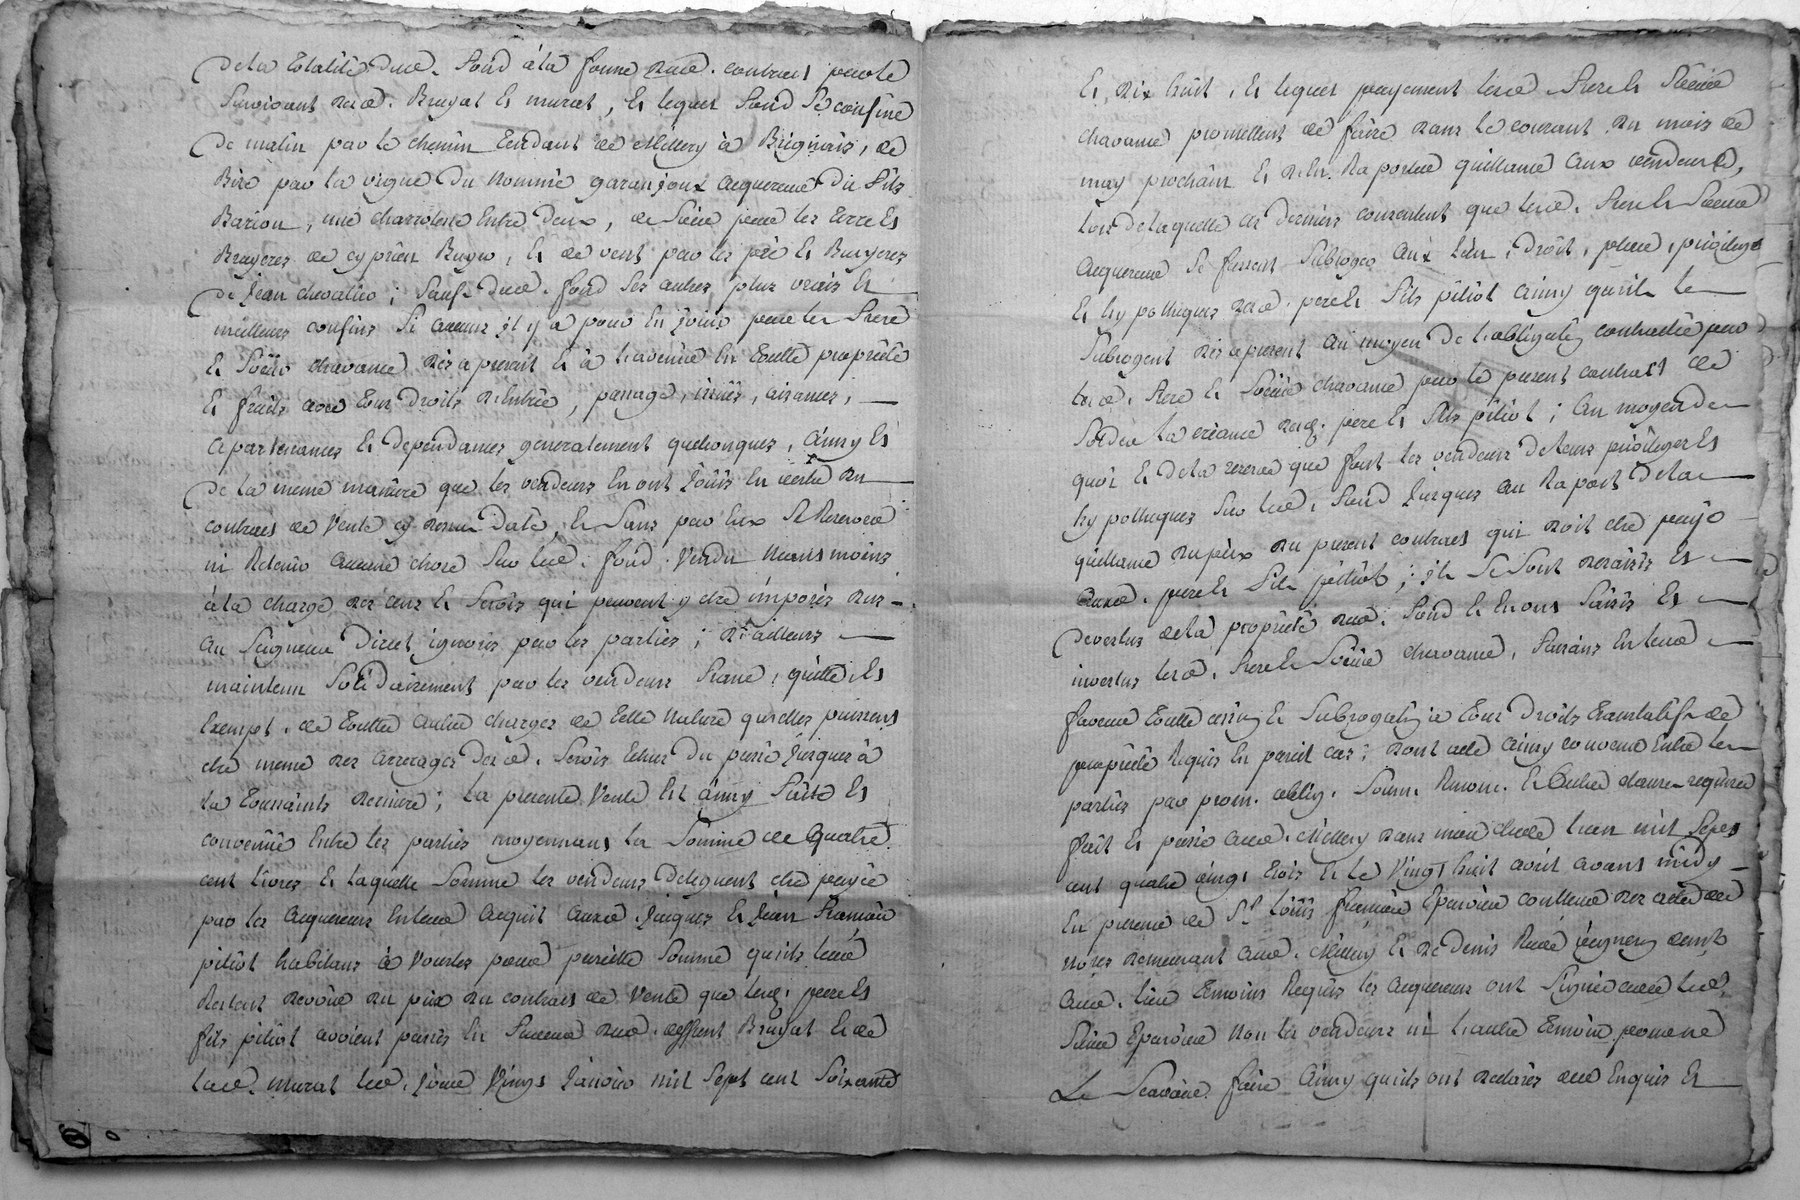 de la totalité dud. fond à la forme dud. contract par le
survivant dud. Bruyat et murat, Et lequel fond se confine
de matin par le chemin tendant de Millery à Brignais, de
bize par la vigne du nommé garanjoux acquereur du fils
Barion, une charrotiere Entre deux, de soir par les terre Et
Bruyeres de cyprien Buyer, Et de vent par les pré Et Bruyeres
de jean chevalier ; Sauf dud. fond ses autres plus vrais Et
meilleurs confins Si aucuns il y a pour En jouir par les frere
Et Soeur chavanne dès apresent Et à l'avenir En toutte proprieté
Et fruits avec tous droits d'Entrée, passage, issües, aisances,
apartenances Et dependances generalement quelconques, ainsy Et
de la meme maniere que les vendeurs En ont joüis En vertu du
contract de vente cy dessus daté, Et Sans par Eux Se Reserver
ni Retenir aucune chose Sur led. fond vendu neansmoins
à la charge des cens Et Servis qui peuvent y etre imposés dus
au Seigneur Direct ignorés par les parties ; d'ailleurs
maintenu Solidairement par les vendeurs franc, quitte Et
Exempt de toutte autre charges de telle nature qu'elles puissent
etre meme des arrerages desd. Servis Echus du passé jusques à
la toussaints derniere ; la presente vente Est ainsy faitte Et
convenüe Entre les parties moyennant la Somme de quatre
cent livres Et laquelle Somme les vendeurs deleguent etre payée
par les acquereurs En leur acquit auxd. jacques Et jean
pitiot habitans à vourles pour pareille Somme qu'ils leur
Restent devoir du prix du contract de vente que lesd. pere Et
fils pitiot avoient passés En faveur dud. deffunt Bruyat Et de
lad. murat led. jour vingt janvier mil Sept cent Soixante
Et dix huit, Et lequel payement lesd. frere Et Soeur
chavanne promettent de faire dans le courant du mois de
may prochain Et d'En Raporter quittance aux vendeurs,
lors de laquelle ces derniers consentent que lesd. frere Et Soeur
acquereurs Se fassent Subroger aux lieu, droit, place, privilege
Et hypotheques desd. pere Et fils pitiot ainsy qu'ils les
Subrogent dès apresent au moyen de l'obligation contractée par
lesd. frere Et Soeur chavanne par le present contract de
Solder la creance desd. pere Et fils pitiot ; au moyen de
quoi Et de la reserve que font les vendeurs de leurs privileges Et
hypotheques Sur led. fond jusques au Raport de la
quittance du prix du present contract qui doit etre payé
auxd. pere Et fils pitiot ; ils Se Sont dessaisis Et
devestus de la proprieté dud. fond Et En ont Saisis Et
investus lesd. frere Et Soeur chavanne, faisans En leur
faveur toutte cession Et Subrogation de tous droits translatifs de
proprieté Requis En pareil cas ; dont acte ainsy convenu Entre les
parties par prom. oblig. Soum. Renonc. Et autre clause requise
fait Et passé aud. Millery dans mon etude l'an mil Sept
cent quatre vingt trois Et le vingt huit avril avant midy
En presence de Sr. loüis Eparvier des actes de
aud. Millery Et de denis
aud. lieu temoins Requis les acquereurs ont Signé avec led.
Sieur Eparvier non les vendeurs ni l'autre temoin pour ne
Le Scavoir faire ainsy qu'ils ont declarés de ce Enquis Et